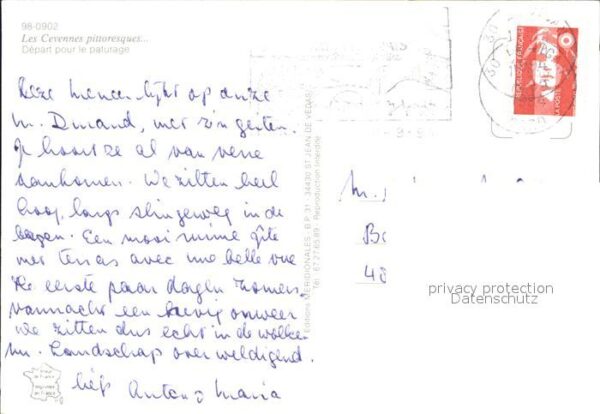 98-0902
Les Cevennes pittoresques...
Départ pour le paturage
Deze meneer lijkt op onze
m. Durand, met z'n geiten.
Je hoort ze al van verre
aankomen. We zitten heel
hoog, langs slingerweg in de
bergen. Een mooi ruime gîte
met terras avec une belle vue
De eerste paar dagen zomers,
vannacht een hevig onweer
We zitten dus echt in de wolken
nu. Landschap overweldigend.
liefs Anton & Maria
Editions MERIDIONALES - B.P. 31 - 34430 ST JEAN DE VEDAS
Tél. 67.27.65.89 - Reproduction interdite
M.
Bo
48
privacy protection
Datenschutz